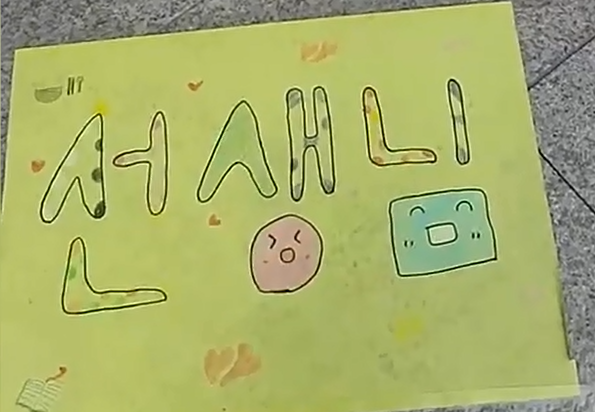 선생님